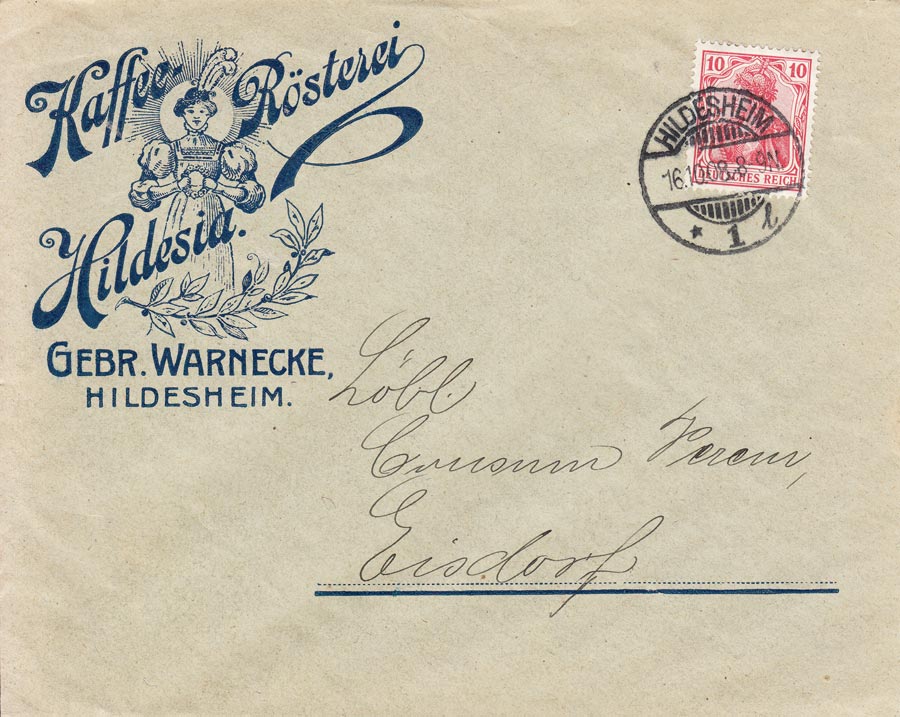 Kaffee-Rösterei
Hildesia.
GEBR. WARNECKE,
HILDESHEIM.
10 10
DEUTSCHES REICH
HILDESHEIM
8-9N.
* 1 l
Löbl.
Consum Verein,
Eisdorf